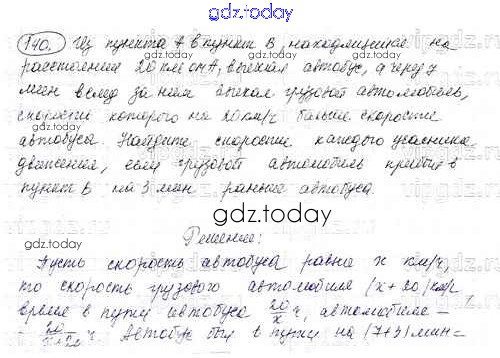 gdz.today
140. Из пункта А в пункт В, находящийся на
расстоянии 20 км от А, выехал автобус, а через 7
мин вслед за ним выехал грузовой автомобиль,
скорость которого на 20 км/ч больше скорости
автобуса. Найдите скорость каждого участника
движения, если грузовой автомобиль прибыл в
пункт В на 3 мин раньше автобуса.
gdz.today
Решение:
Пусть скорость автобуса равна x км/ч,
то скорость грузового автомобиля (x+20) км/ч
время в пути автобуса 20/x ч, автомобиля –
20/x+20 ч. Автобус был в пути на (7+3) мин =